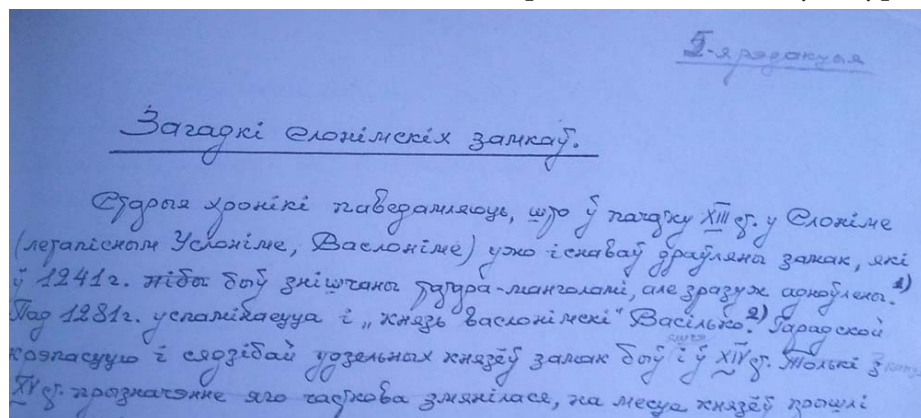 5-я рэдакцыя
Загадкі Слонімскіх замкаў.
Старыя хронікі паведамляюць, што ў пачатку XIII ст. у Слоніме
(летапісным Услоніме, Васлоніме) ужо існаваў драўляны замак, які
ў 1241 г. нібы быў знішчаны татара-манголамі, але зразу ж адноўлены.1)
Пад 1281 г. успамінаецца і „князь васлонімскі" Васілько.2) Гарадской
крэпасцую і сядзібай удзельных князёў замак быў яшчэ і ў XIV ст. Толькі з канца
XV ст. прызначэнне яго часткова змянілася, на месца князёў прышлі